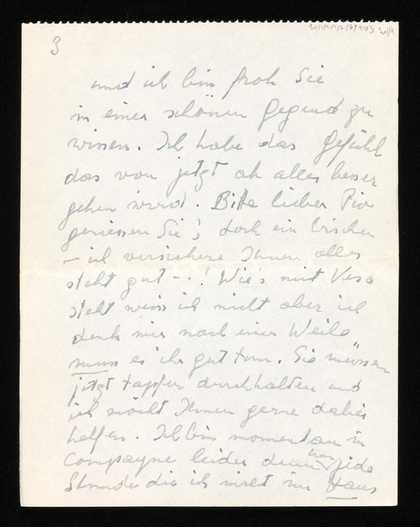 3
und ich bin froh Sie
in einer schönen Gegend zu
wissen. Ich habe das Gefühl
das von jetzt ab alles besser
gehen wird. Bitte lieber Pio
geniessen Sie's doch ein bischen
– ich versichere Ihnen alles
steht gut –! Wie's mit Vera
steht weiss ich nicht aber ich
denk mir nach einer Weile
muss es ihr gut tun. Sie müssen
jetzt tapfer durchhalten und
ich möcht Ihnen gerne dabei
helfen. Ich bin momentan in
Compagne leider denn jede
Stunde die ich nicht im Haus